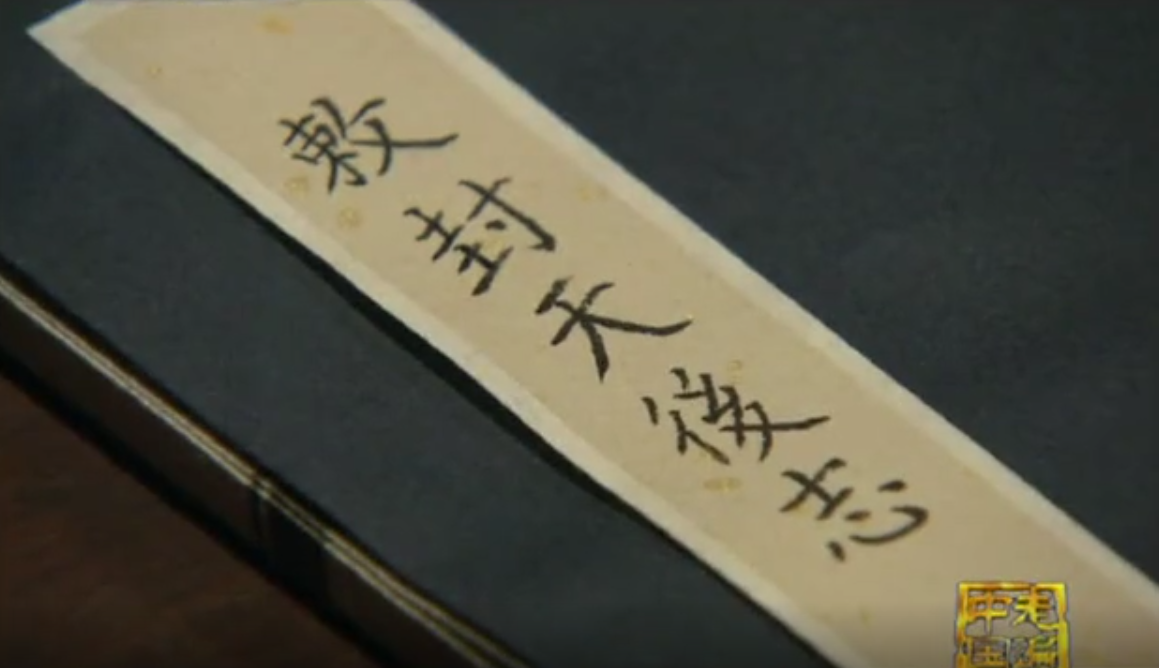 敕封天後志
走遍
中国